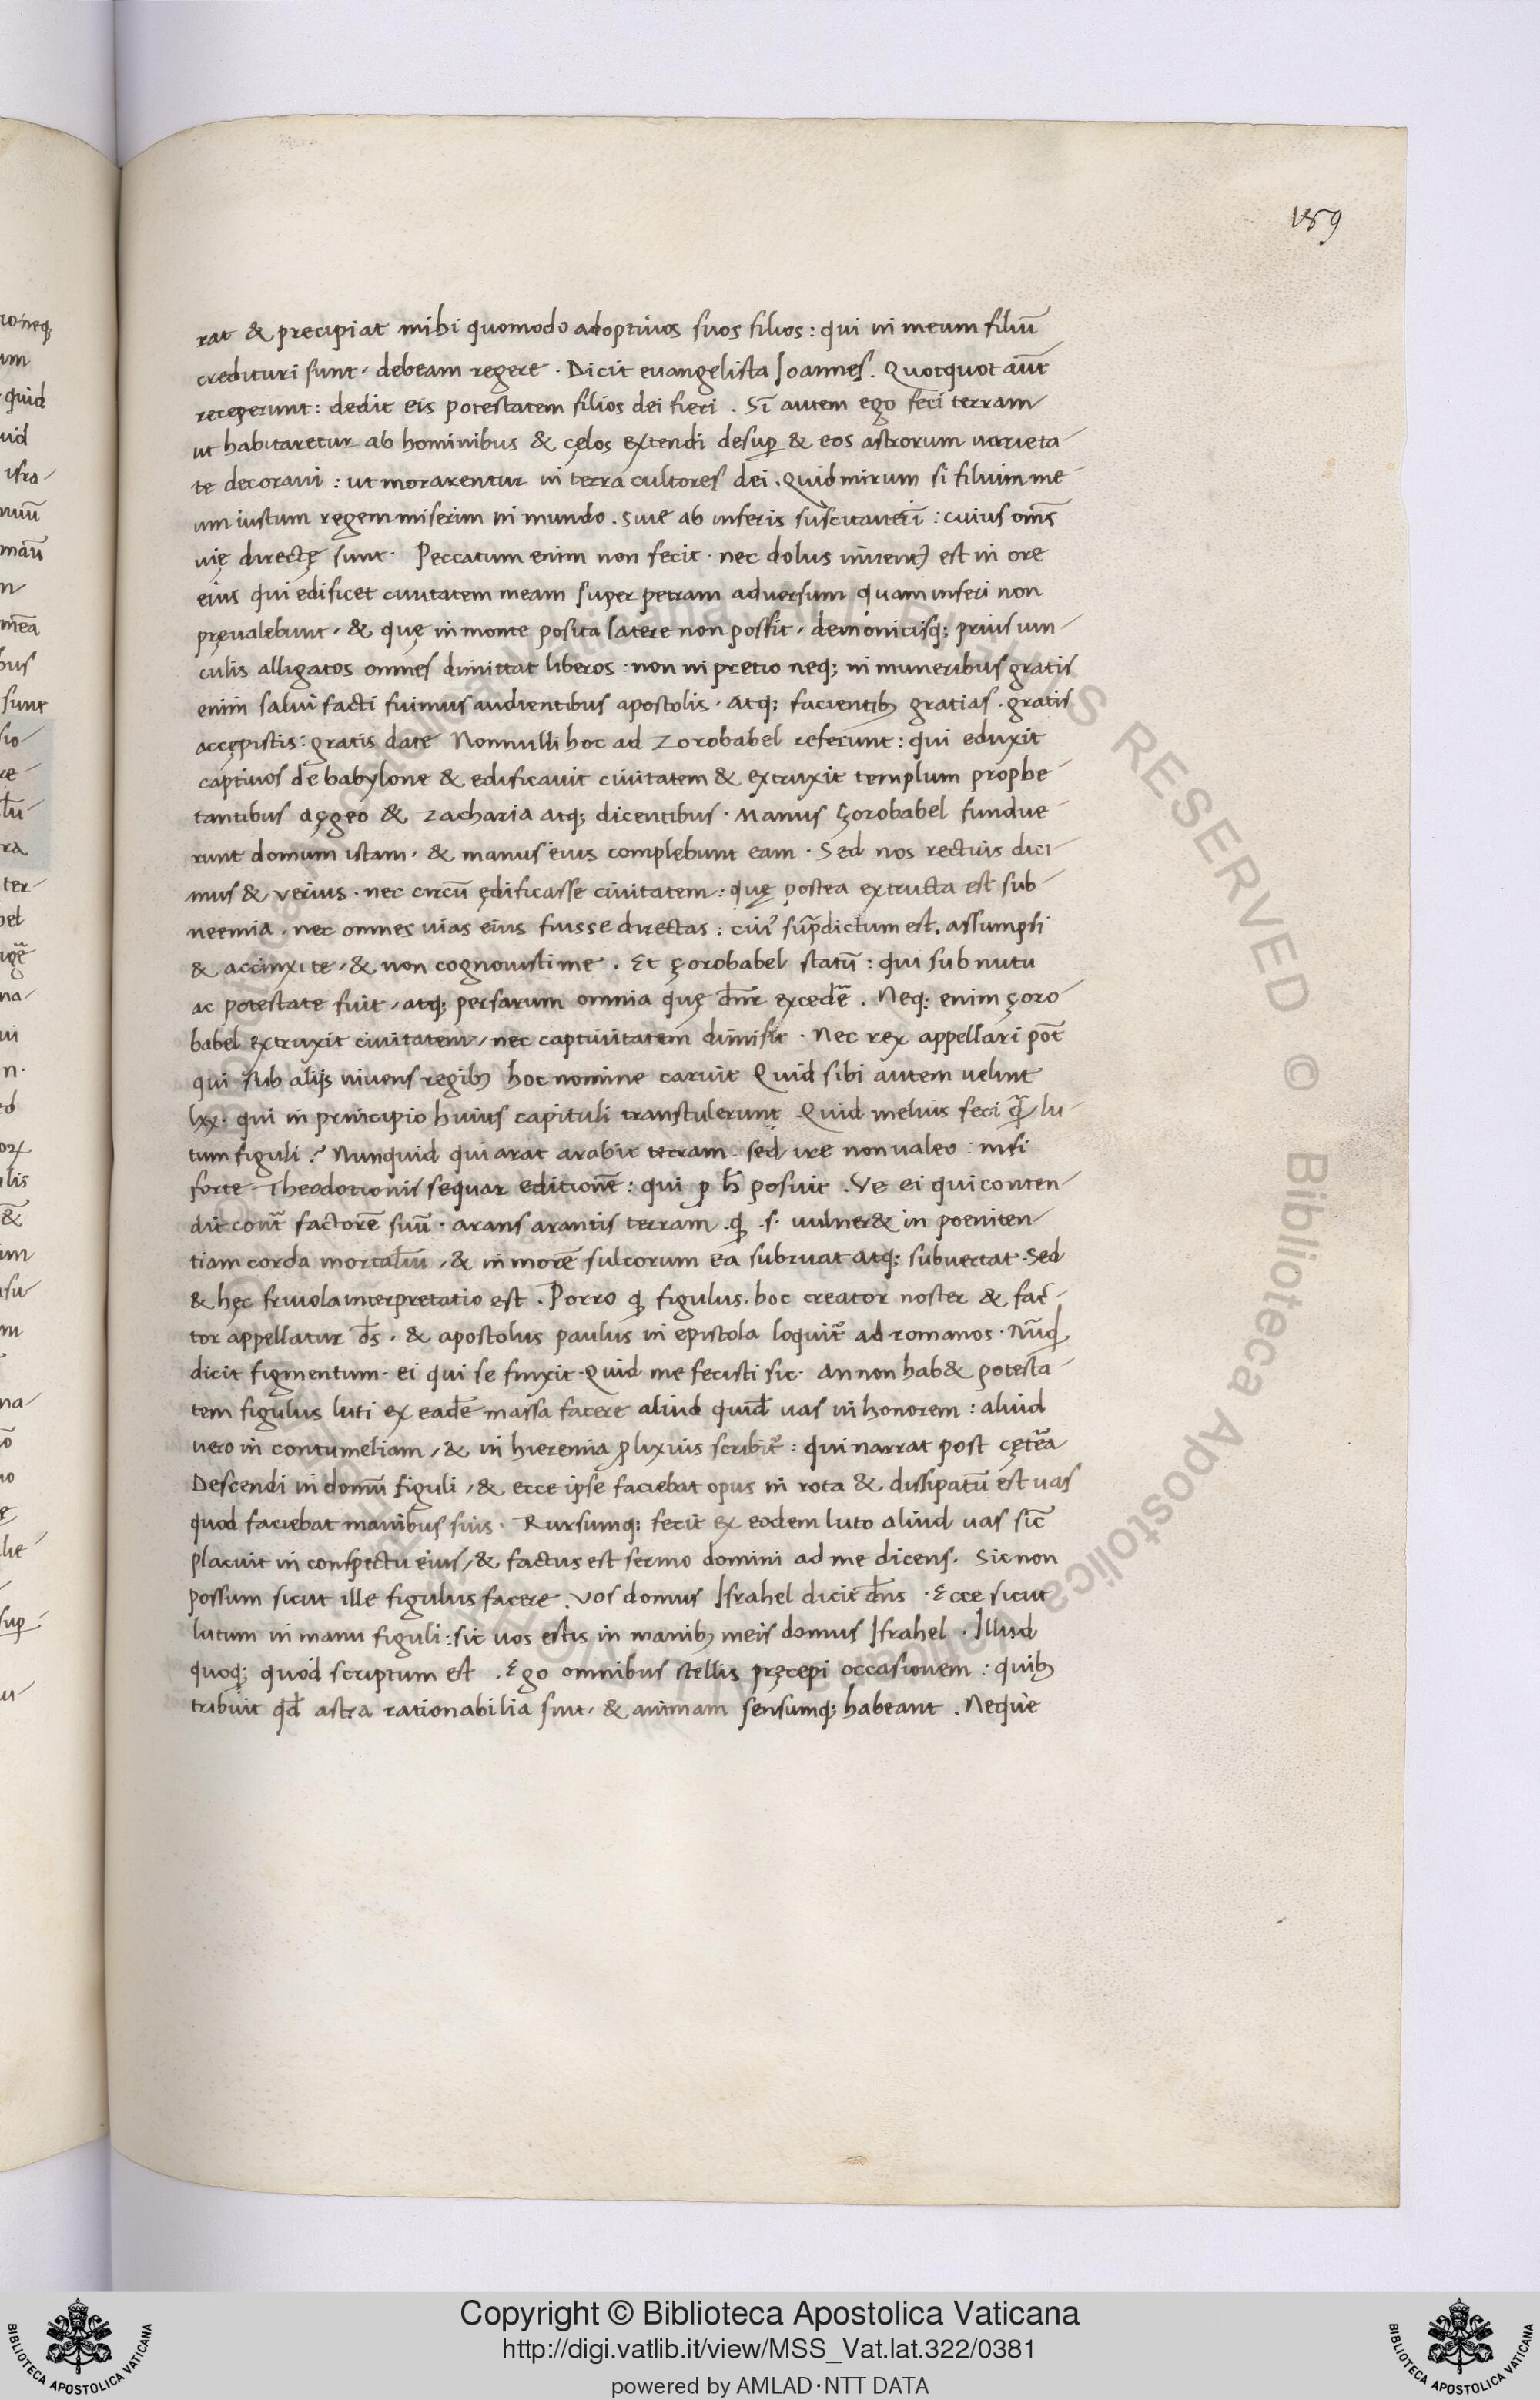 189
rat & precipiat mihi quomodo adoptiuos suos filios : qui in meum filiū
credituri sunt, debeam regere . Dicit euangelista Ioannes . Quotquot aūt
receperunt : dedit eis potestatem filios dei fieri . Sī autem ego feci terram
ut habitaretur ab hominibus & cęlos extendi desuꝑ & eos astrorum uarieta-
te decoraui : ut morarentur in terra cultores dei . Quid mirum si filium me-
um iustum regem miserim in mundo . siue ab inferis suscitauerī : cuius om̄s
uię directę sunt . Peccatum enim non fecit . nec dolus inuent) est in ore
eius qui edificet ciuitatem meam super petram aduersum quam inferi non
pręualebunt, & quę in monte posita latere non possit, demonicisq; prius uin-
culis alligatos omnes dimittat liberos : non in pretio neq; in muneribus gratis
enim salui facti fuimus audientibus apostolis, atq; facientib; gratias . gratis
accępistis : gratis date Nonnulli hoc ad Zorobabel referunt : qui eduxit
captiuos de babylone & edificauit ciuitatem & extruxit templum prophe-
tantibus açgeo & Zacharia atq; dicentibus . Manus çorobabel fundue-
runt domum istam, & manus eius complebunt eam . Sed nos rectius dici-
mus & uerius . nec circū ędificasse ciuitatem : quę postea extructa est sub-
neemia, nec omnes uias eius fuisse directas : cui' sup̄dictum est . assumpsi
& accinxi te, & non cognouisti me . Et çorobabel statū : qui sub nutu
ac potestate fuit, atq; persarum omnia quę dn̄r excedē̄ . Neq; enim çoro-
babel extruxit ciuitatem, nec captiuitatem dimisit . Nec rex appellari pōt
qui sub alijs uiuens regib; hoc nomine caruit Quid sibi autem uelint
lxx . qui in principio huius capituli transtulerunt Quid melius feci q̄ lu-
tum figuli ? Nunquid qui arat arabit terram . sed ire non ualeo : nisi
forte Theodotionis sequar editionē : qui ꝑ h̄ posuit . Ve ei qui conten-
dit cont̄ factorē suū . arans arantis terram . ꝙ .s. uulner& in poeniten-
tiam corda mortaliū, & in morē sulcorum ea subruat atq; subuertat . Sed
& hęc friuola interpretatio est . Porro ꝙ figulus . hoc creator noster & fac-
tor appellatur d̄s, & apostolus paulus in epistola loquit᷑ ad romanos . Nūqđ
dicit figmentum . ei qui se finxit . Quid me fecisti sic . An non hab& potesta-
tem figulus luti ex eadē massa facere aliud quid̄ uas in honorem : aliud
uero in contumeliam, & in hieremia ꝓlixius scribit᷑ : qui narrat post cętēa
Descendi in domū figuli, & ecce ipse faciebat opus in rota & dissipatū est uas
quod faciebat manibus suis . Rursumq; fecit ex eodem luto aliud uas sic̄
placuit in conspectu eius, & factus est sermo domini ad me dicens . Sic non
possum sicut ille figulus facere . Vos domus Israhel dicit dn̄s . Ecce sicut
lutum in manu figuli : sic uos estis in manib; meis domus Israhel . Illud
quoq; quod scriptum est . Ego omnibus stellis pręcepi occasionem : quib;
tribuit qđ astra rationabilia sint, & animam sensumq; habeant . Neque
Copyright © Biblioteca Apostolica Vaticana
http://digi.vatlib.it/view/MSS_Vat.lat.322/0381
powered by AMLAD·NTT DATA